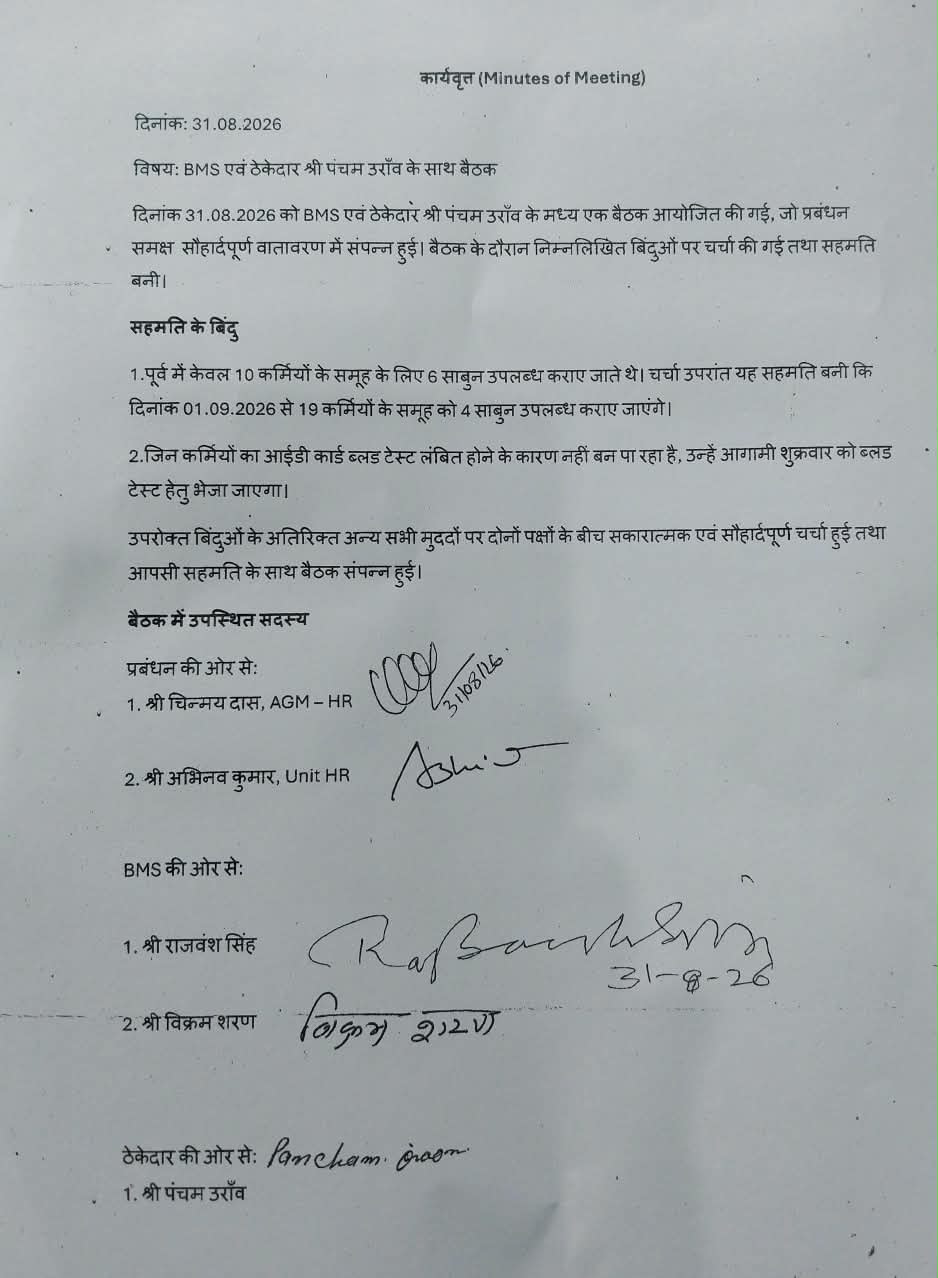 कार्यवृत्त (Minutes of Meeting)
दिनांक: 31.08.2026
विषय: BMS एवं ठेकेदार श्री पंचम उराँव के साथ बैठक
दिनांक 31.08.2026 को BMS एवं ठेकेदार श्री पंचम उराँव के मध्य एक बैठक आयोजित की गई, जो प्रबंधन
समक्ष सौहार्दपूर्ण वातावरण में संपन्न हुई। बैठक के दौरान निम्नलिखित बिंदुओं पर चर्चा की गई तथा सहमति
बनी।
सहमति के बिंदु
1.पूर्व में केवल 10 कर्मियों के समूह के लिए 6 साबुन उपलब्ध कराए जाते थे। चर्चा उपरांत यह सहमति बनी कि
दिनांक 01.09.2026 से 19 कर्मियों के समूह को 4 साबुन उपलब्ध कराए जाएंगे।
2.जिन कर्मियों का आईडी कार्ड ब्लड टेस्ट लंबित होने के कारण नहीं बन पा रहा है, उन्हें आगामी शुक्रवार को ब्लड
टेस्ट हेतु भेजा जाएगा।
उपरोक्त बिंदुओं के अतिरिक्त अन्य सभी मुददों पर दोनों पक्षों के बीच सकारात्मक एवं सौहार्दपूर्ण चर्चा हुई तथा
आपसी सहमति के साथ बैठक संपन्न हुई।
बैठक में उपस्थित सदस्य
प्रबंधन की ओर से:
1. श्री चिन्मय दास, AGM – HR 31/08/26
2. श्री अभिनव कुमार, Unit HR
BMS की ओर से:
1. श्री राजवंश सिंह
31-8-26
2. श्री विक्रम शरण विक्रम शरण
ठेकेदार की ओर से: Pancham. Oraon
1. श्री पंचम उराँव